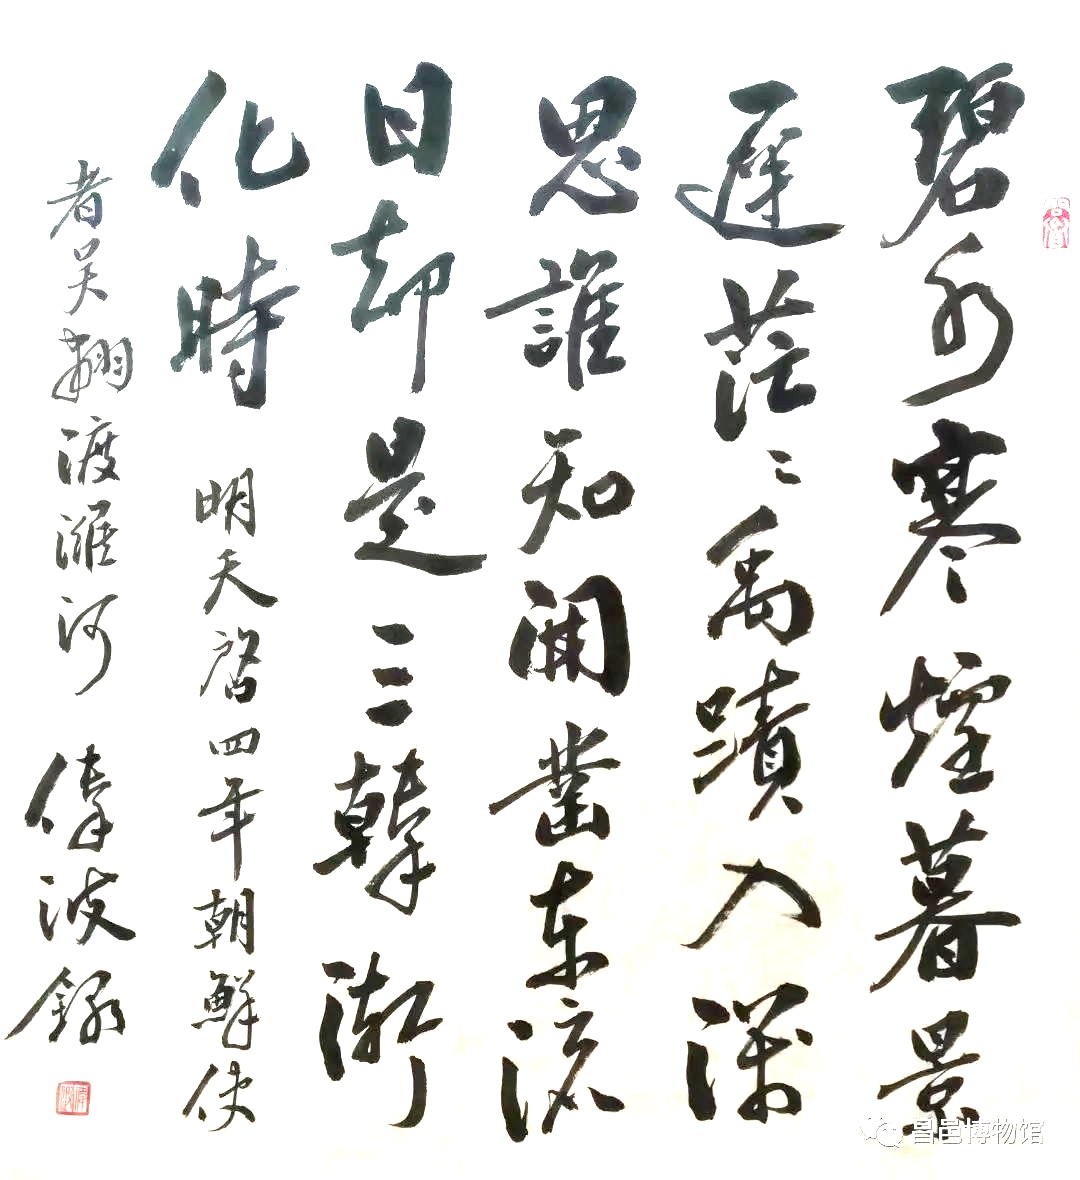 碧水寒煙暮景
遲茫〻禹蹟入深
思誰知開鑿東流
日却是三韓漸
化時 明天啓四年朝鮮使
者吴翽渡濰河 偉波錄
昌邑博物馆